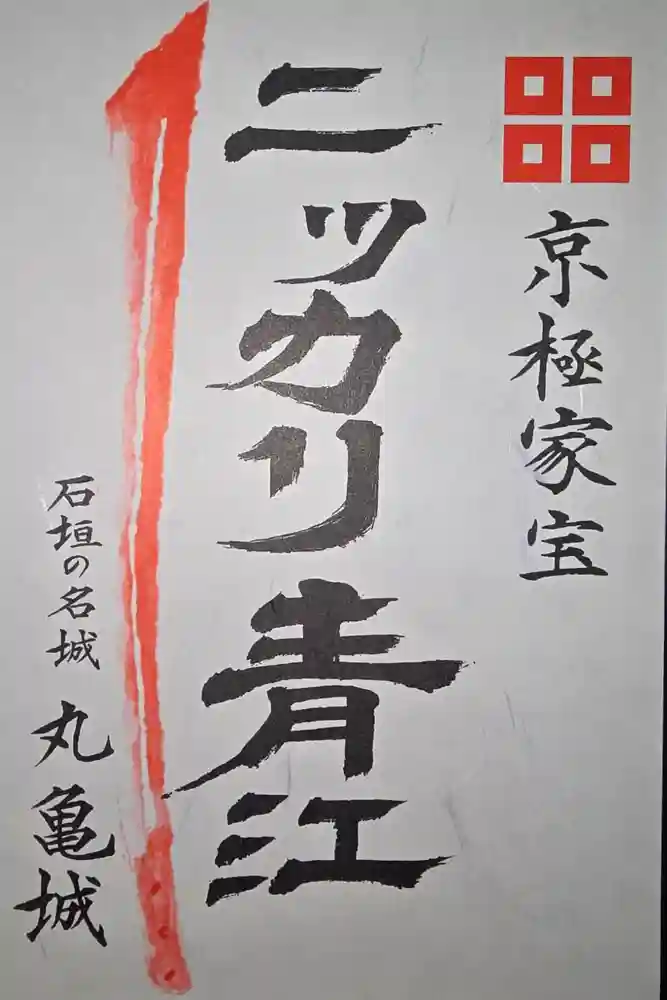 京極家宝
ニッカリ青江
石垣の名城
丸亀城